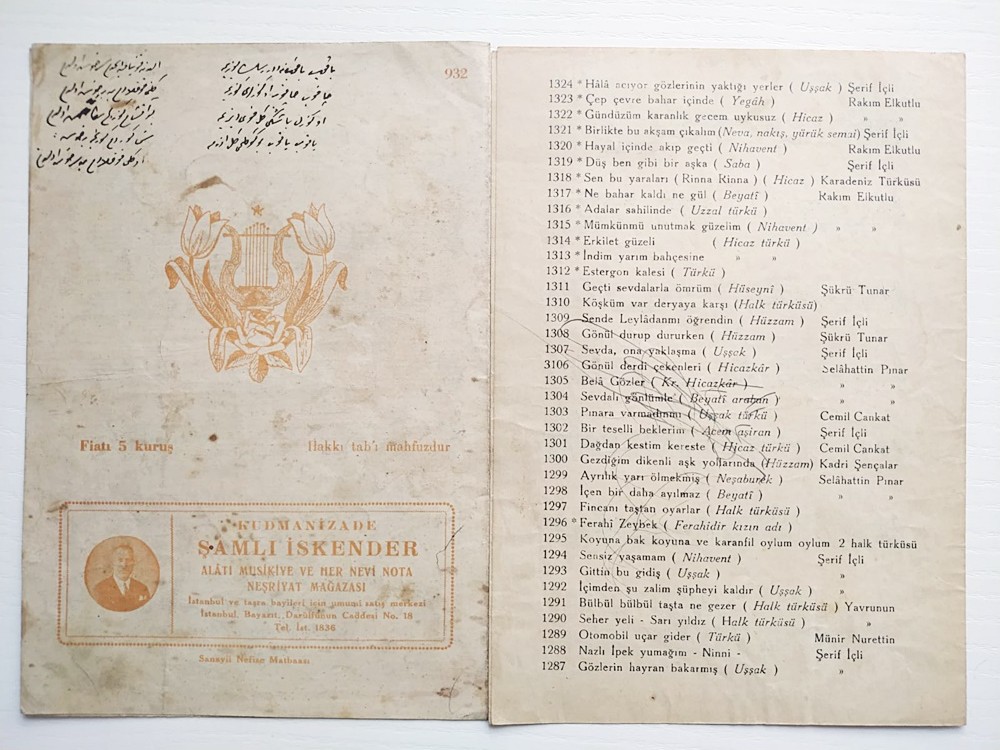 932
Fiatı 5 kuruş
Hakkı tab'ı mahfuzdur
KUDMANİZADE
ŞAMLI İSKENDER
ALÂTI MUSİKİYE VE HER NEVİ NOTA
NEŞRİYAT MAĞAZASI
İstanbul ve taşra bayileri için umumi satış merkezi
İstanbul, Bayazıt, Darülfünun Caddesi No. 18
Tel. İst. 1836
Sanayii Nefise Matbaası
1324 * Hâlâ acıyor gözlerinin yaktığı yerler ( Uşşak ) Şerif İçli
1323 * Çep çevre bahar içinde ( Yegâh ) Rakım Elkutlu
1322 * Gündüzüm karanlık gecem uykusuz ( Hicaz ) » »
1321 * Birlikte bu akşam çıkalım (Neva, nakış, yürük semai) Şerif İçli
1320 * Hayal içinde akıp geçti ( Nihavent ) Rakım Elkutlu
1319 * Düş ben gibi bir aşka ( Saba ) Şerif İçli
1318 * Sen bu yaraları ( Rinna Rinna ) ( Hicaz ) Karadeniz Türküsü
1317 * Ne bahar kaldı ne gül ( Beyatî ) Rakım Elkutlu
1316 * Adalar sahilinde ( Uzzal türkü )
1315 * Mümkünmü unutmak güzelim ( Nihavent ) » »
1314 * Erkilet güzeli ( Hicaz türkü )
1313 * İndim yarım bahçesine » »
1312 * Estergon kalesi ( Türkü )
1311 Geçti sevdalarla ömrüm ( Hüseynî ) Şükrü Tunar
1310 Köşküm var deryaya karşı (Halk türküsü)
1309 Sende Leylâdanmı öğrendin ( Hüzzam ) Şerif İçli
1308 Gönül durup dururken ( Hüzzam ) Şükrü Tunar
1307 Sevda, ona yaklaşma ( Uşşak ) Şerif İçli
3106 Gönül derdi çekenleri ( Hicazkâr ) Selâhattin Pınar
1305 Belâ Gözler ( Kr. Hicazkâr ) » »
1304 Sevdalı gönlümle ( Beyatî araban ) » »
1303 Pınara varmadınmı ( Uşşak türkü ) Cemil Cankat
1302 Bir teselli beklerim ( Acem aşiran ) Şerif İçli
1301 Dağdan kestim kereste ( Hicaz türkü ) Cemil Cankat
1300 Gezdiğim dikenli aşk yollarında (Hüzzam) Kadri Şençalar
1299 Ayrılık yarı ölmekmiş ( Neşaburek ) Selâhattin Pınar
1298 İçen bir daha ayılmaz ( Beyatî ) » »
1297 Fincanı taştan oyarlar ( Halk türküsü )
1296 * Ferahî Zeybek ( Ferahidir kızın adı )
1295 Koyuna bak koyuna ve karanfil oylum oylum 2 halk türküsü
1294 Sensiz yaşamam ( Nihavent ) Şerif İçli
1293 Gittin bu gidiş ( Uşşak ) »
1292 İçimden şu zalim şüpheyi kaldır ( Uşşak ) »
1291 Bülbül bülbül taşta ne gezer ( Halk türküsü ) Yavrunun
1290 Seher yeli - Sarı yıldız ( Halk türküsü ) »
1289 Otomobil uçar gider ( Türkü ) Münir Nurettin
1288 Nazlı İpek yumağım - Ninni - Şerif İçli
1287 Gözlerin hayran bakarmış ( Uşşak ) »